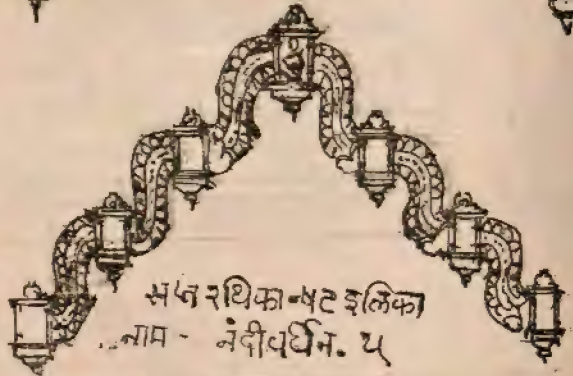 सप्त रथिका-षट इलिका
नाम - नंदीवर्धन. ५